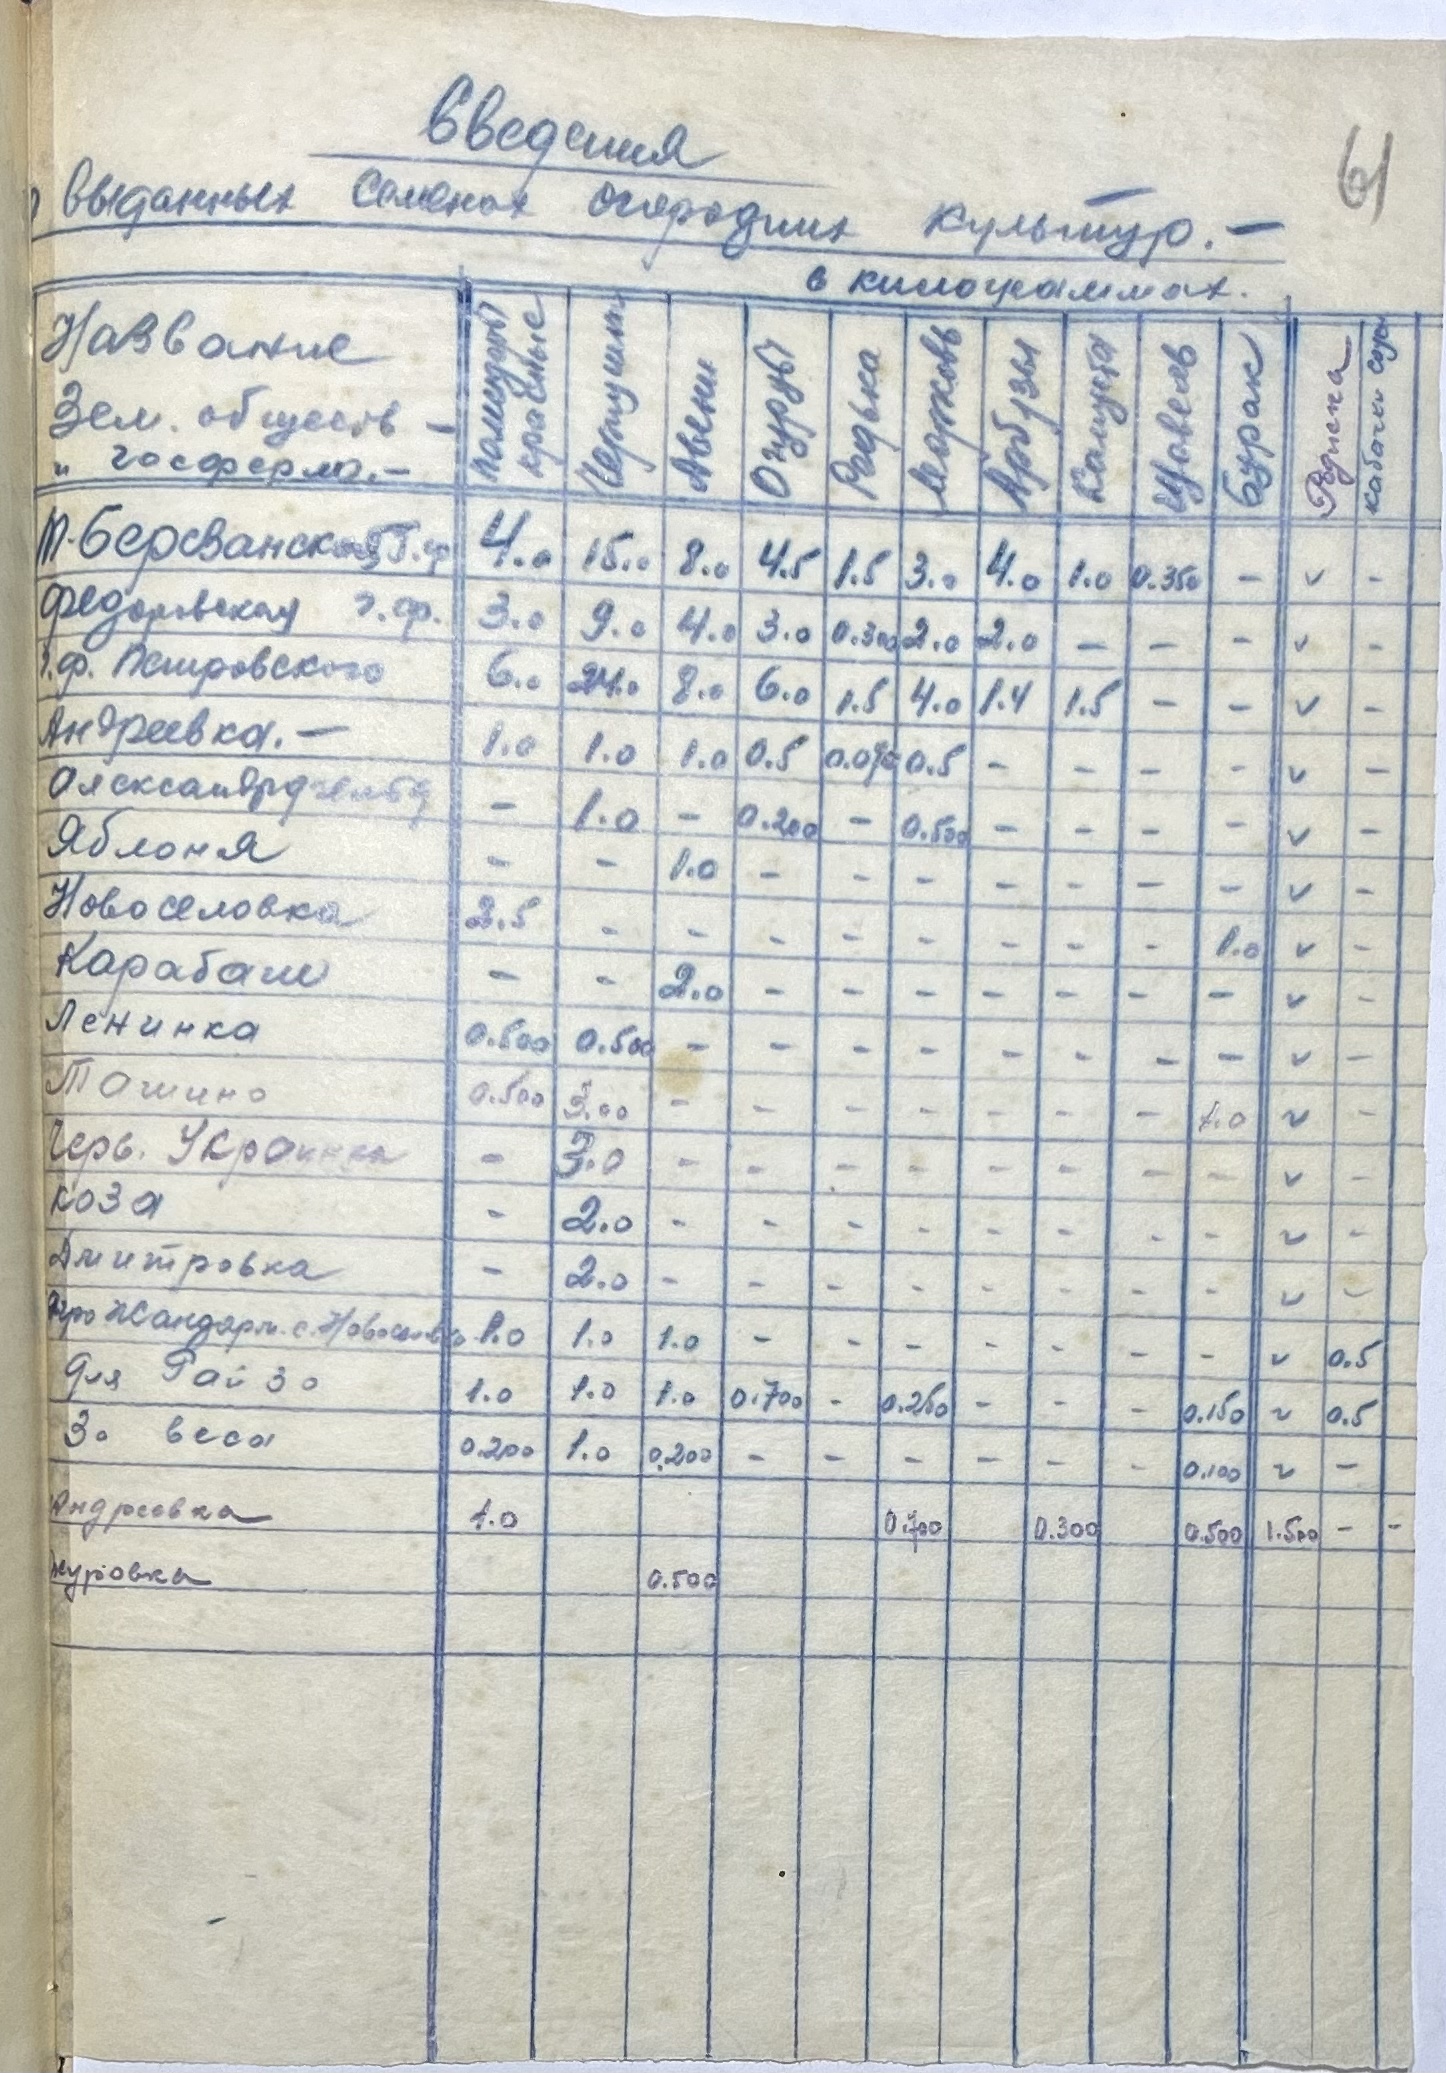 61
Введения
о выданных семенах огородних культур. —
в килограммах.
Название
Зем. обществ —
" госферма. —
Помидоры красные
Огурцы
Редька
Морковь
Арбузы
Капуста
Щавель
Бурак
кабачки
4.0 15.0 8.0 4.5 1.5 3.0 4.0 1.0 0.350 - v -
Федоровская г.ф. 3.0 9.0 4.0 3.0 0.300 2.0 2.0 - - - v -
г.ф. Петровского 6.0 24.0 8.0 6.0 1.5 4.0 1.4 1.5 - - v -
Андреевка. — 1.0 1.0 1.0 0.5 0.5 - - - - v -
- 1.0 - 0.200 - 0.500 - - - - v -
Яблоня - - 1.0 - - - - - - - v -
Новоселовка 2.5 - - - - - - - - 1.0 v -
Карабаш - - 2.0 - - - - - - - v -
Ленинка 0.500 0.500 - - - - - - - - v -
Ташино 0.500 3.00 - - - - - - - 1.0 v -
Черв. Украинка - 3.0 - - - - - - - - v -
коза - 2.0 - - - - - - - - v -
Дмитровка - 2.0 - - - - - - - - v -
1.0 1.0 1.0 - - - - - - - v 0.5
Для Рай зо 1.0 1.0 1.0 0.700 - 0.250 - - - 0.150 v 0.5
За веса 0.200 1.0 0.200 - - - - - - 0.100 v -
Андреевка 1.0 0.700 0.300 0.500 1.500 - -
0.500